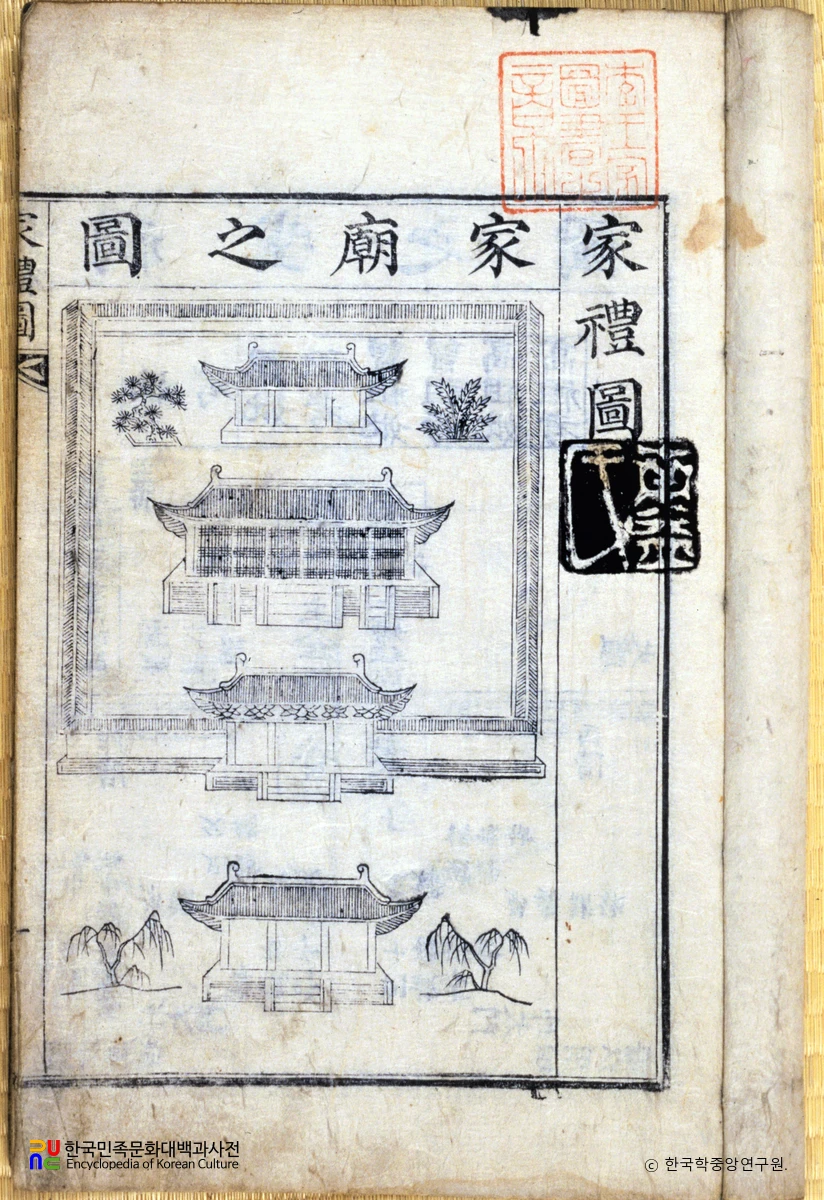 家禮圖
家廟之圖
家禮圖
李王家
圖書
之章
한국민족문화대백과사전
Encyclopedia of Korean Culture
© 한국학중앙연구원.